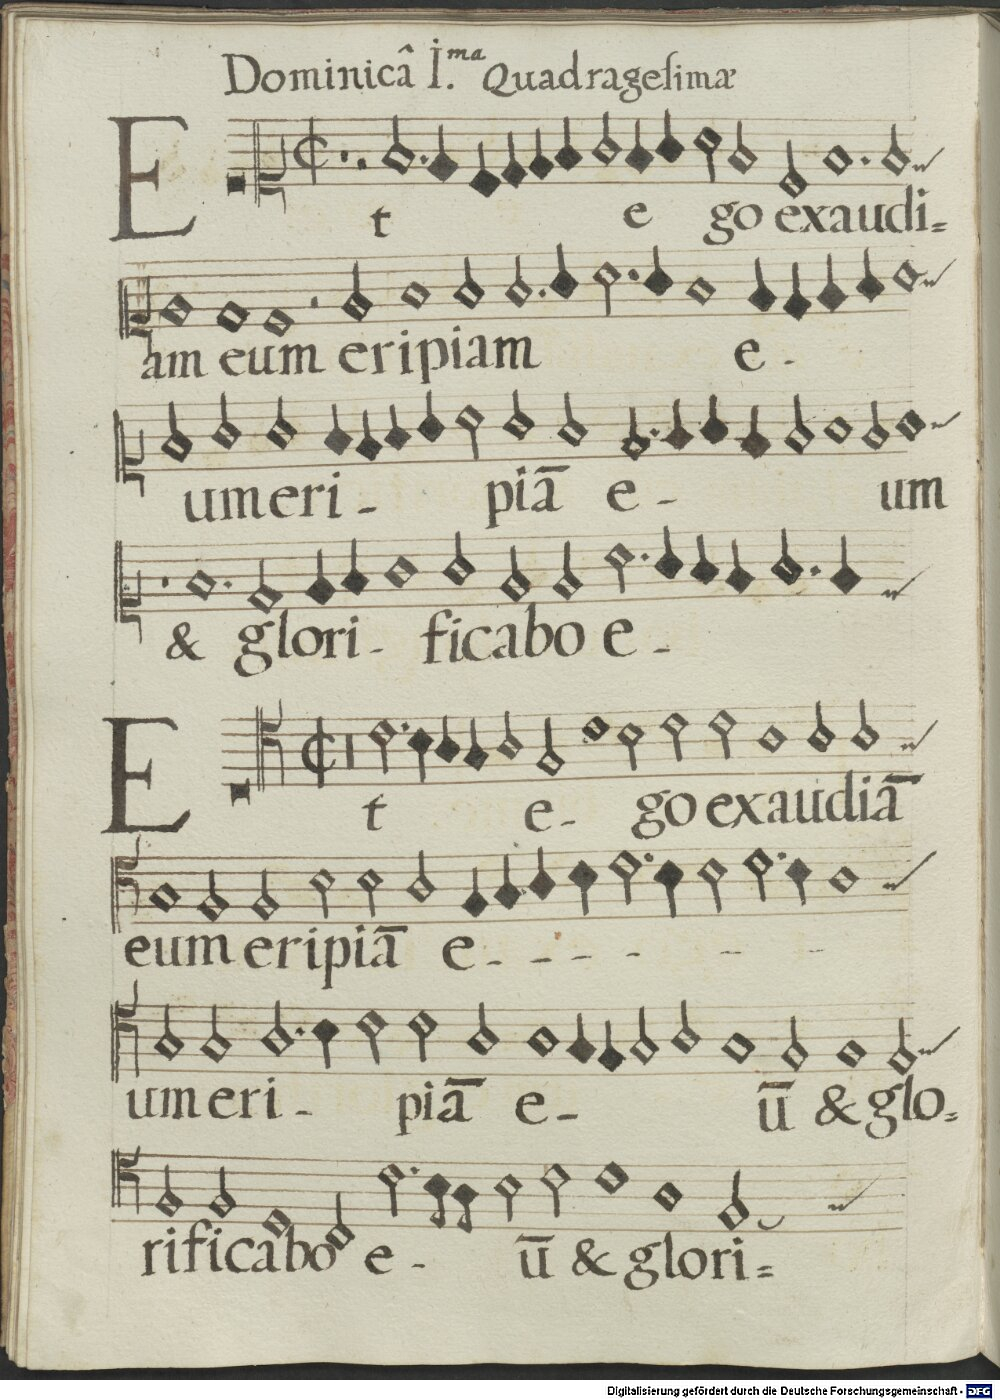 Dominicâ I.ma Quadragesimæ
Et e go exaudi=
am eum eripiam e -
umeri - piā e - um
& glori - ficabo e -
Et e - go exaudiā
eum eripiā e - - - - - -
umeri - piā e - ū & glo=
rificabo e - ū & glori=
Digitalisierung gefördert durch die Deutsche Forschungsgemeinschaft - DFG